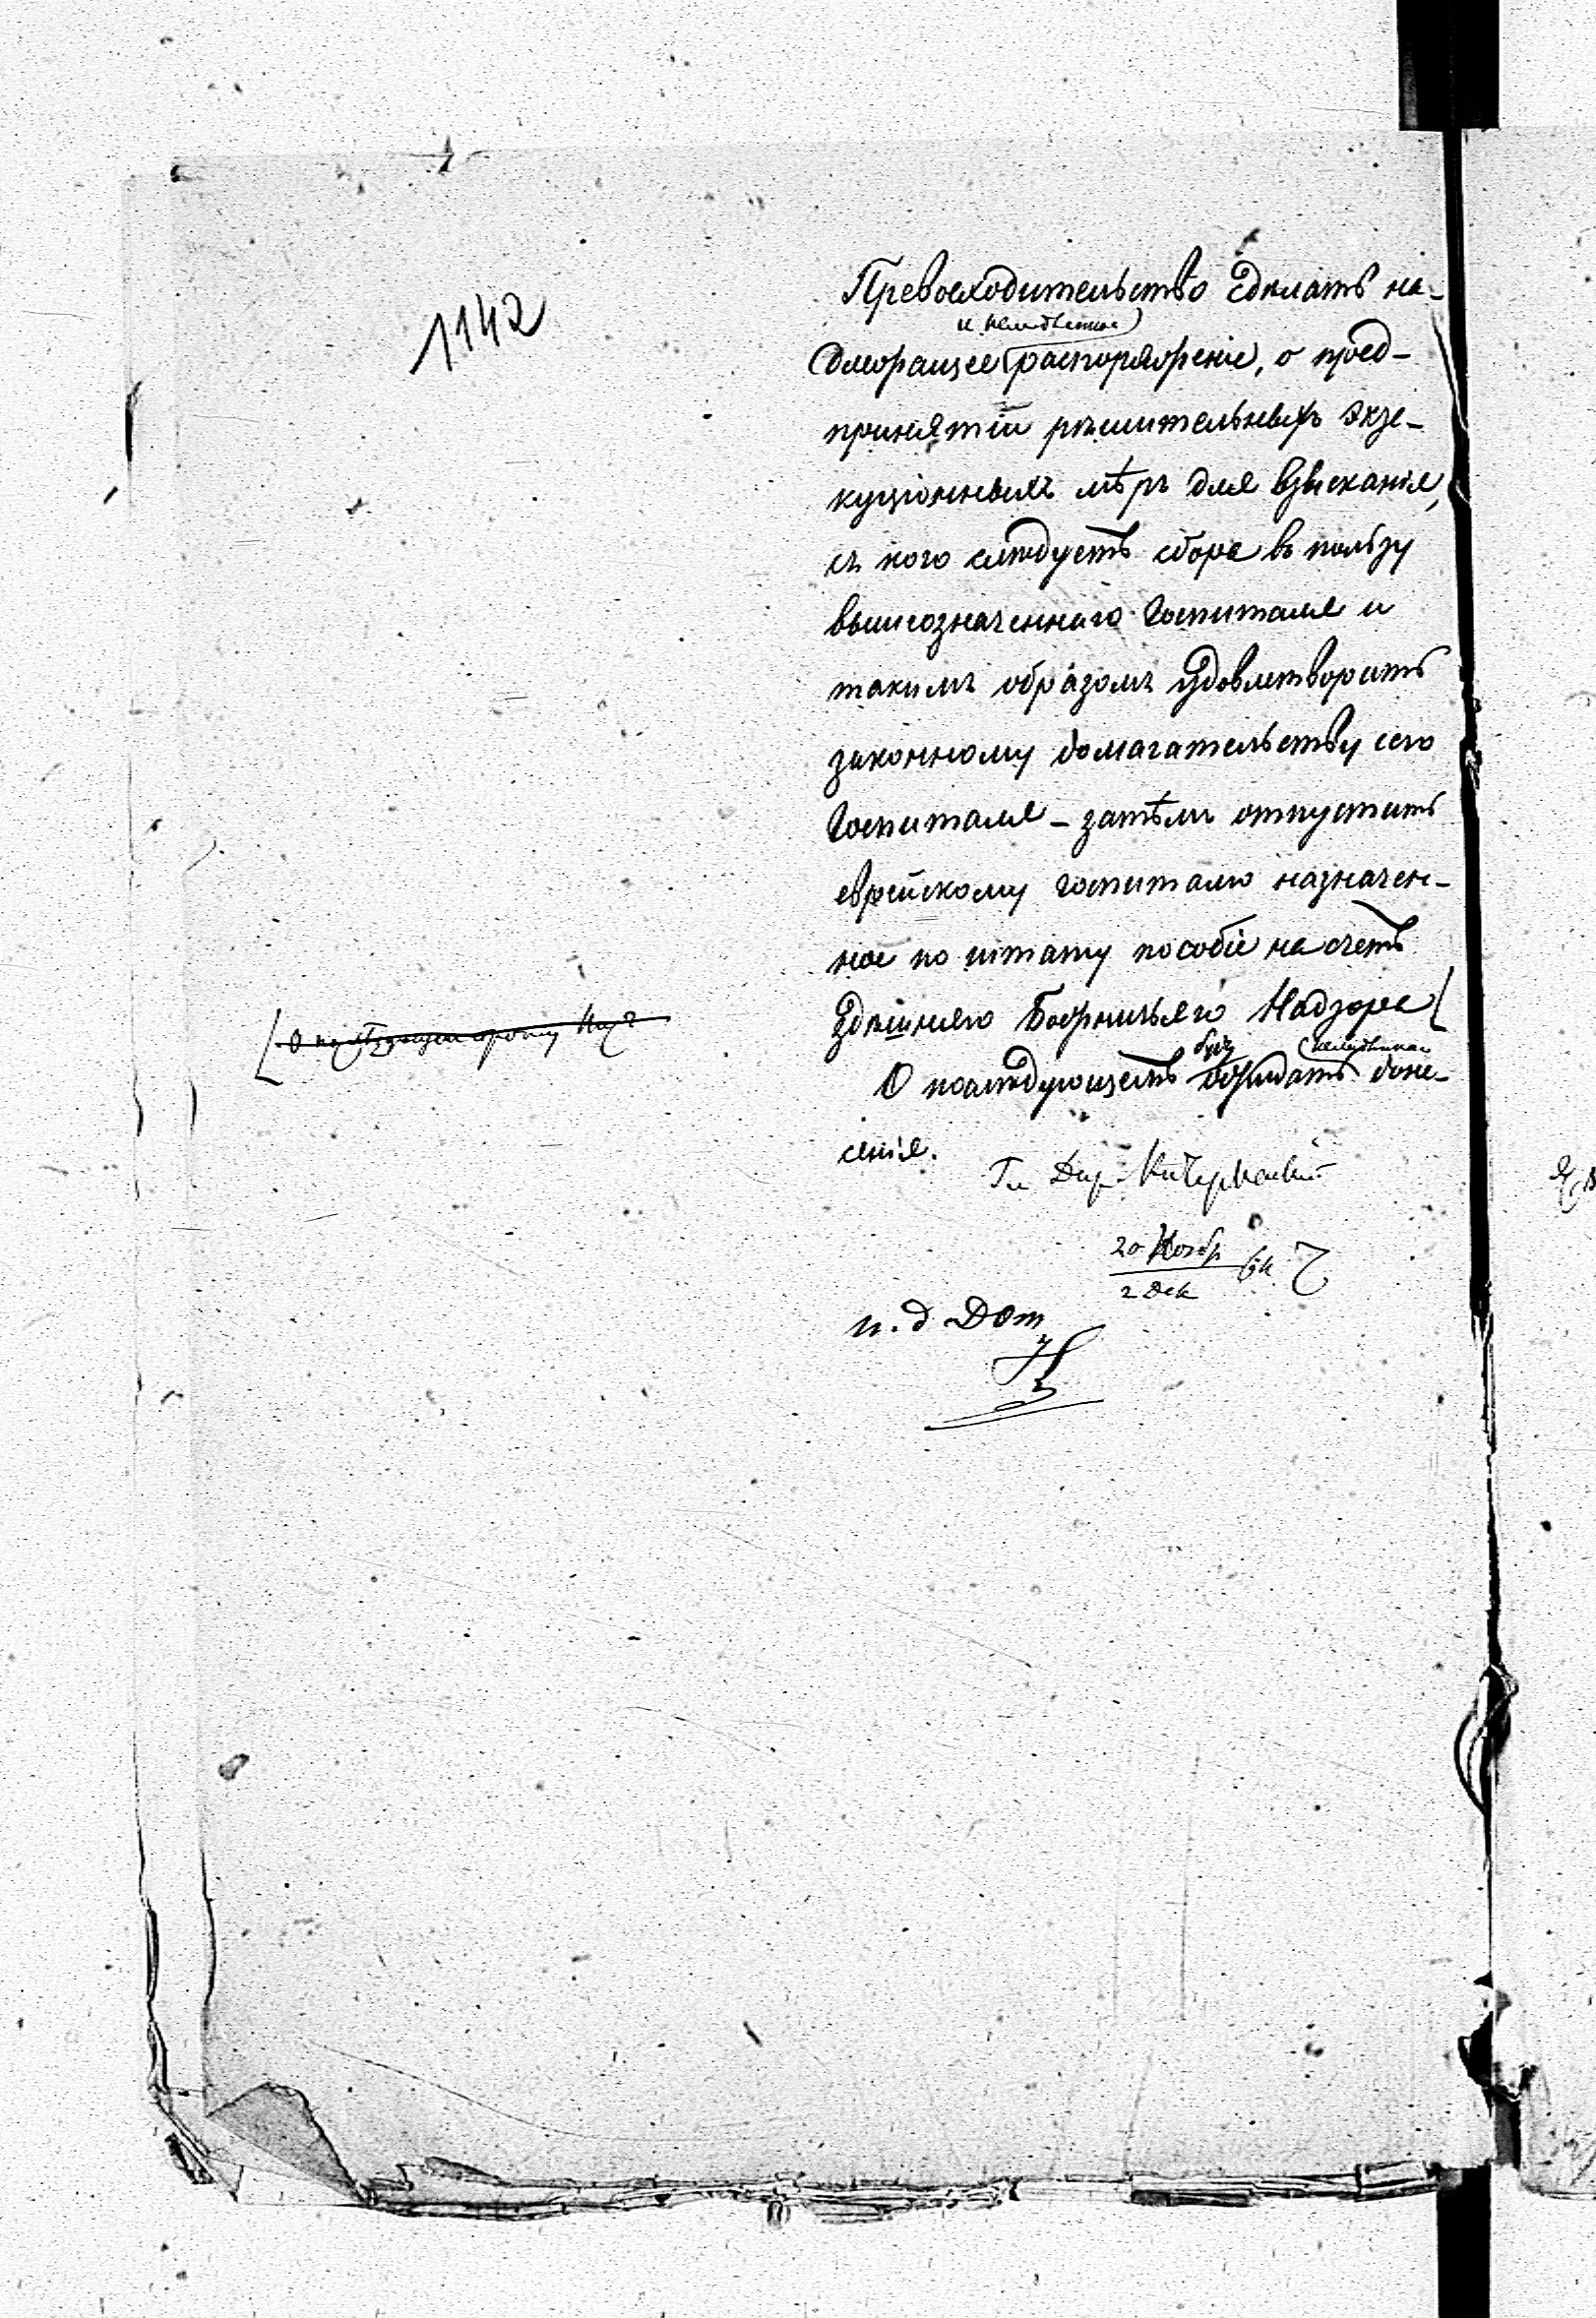 1142
Превосходительство сдѣлать на-
и немедленное
длежащее распоряженіе, о пред-
принятіи рѣшительныхъ экзе-
куціонныхъ мѣръ для взысканія,
съ кого слѣдуетъ сбора въ пользу
вышеозначеннаго Госпиталя и
такимъ образомъ удовлетворить
законному домагательству сего
Госпиталя – затѣмъ отпустить
еврейскому госпиталю назначен-
ное по штату пособіе на счетъ
здѣшняго Божничьяго Надзора
буду
О послѣдующемъ ожидать доне-
сенія.
Гл Дир.
20 Ноябр
2 Дек
и. д